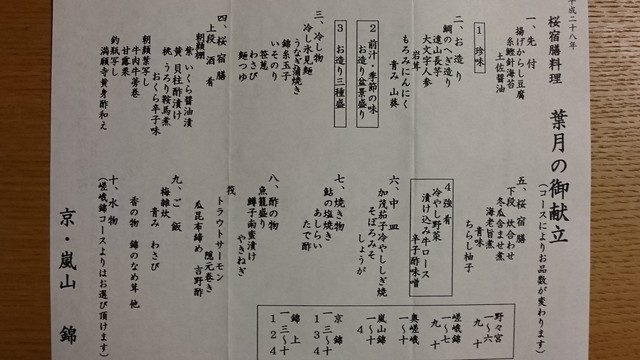 平成二十八年
葉月の御献立
(コースによりお品数が変わります)
桜宿膳料理
一、先付
揚げからし豆腐
糸鰹針海苔
土佐醤油
1 珍味
二、お造り
鯛のへぎ造り
遠山長芋
大文字人参
岩茸
青み 山葵
もろみにんにく
2 前汁・季節の味
お造り盆景盛り
3 お造り三種盛
三、冷し物
冷し氷見麺
うなぎ蒲焼き
錦糸玉子
いそのり
笹葱
わさび
麺つゆ
四、桜宿膳
上段 酒肴
朝顔棚
紫 いくら醤油漬
黄 貝柱酢漬け
桃 うろり鞍馬煮
おくら辛子味
朝顔葉写し
牛肉牛蒡巻
甘露栗
釣瓶写し
満願寺黄身酢和え
五、桜宿膳
下段 炊合わせ
冬瓜含ませ煮
海老旨煮
青味
ちらし柚子
4 強肴
冷やし野菜
漬け込み牛ロース
辛子酢味噌
六、中皿
加茂茄子冷ししぎ焼
そぼろみそ
しょうが
七、焼き物
鮎の塩焼き
あしらい
たで酢
八、酢の物
魚籠盛り
鱒子南蛮漬け
やきねぎ
筏
トラウトサーモン
隠元巻き
瓜昆布締め
吉野酢
九、ご飯
梅雑炊
青み わさび
香の物 錦のなめ茸 他
十、水物
(嵯峨錦コースよりはお選び頂けます)
京・嵐山 錦
野々宮
一〜六
九 十
嵯峨錦
一〜七
九 十
奥嵯峨
一〜十
嵐山錦
一〜十
4
京錦
一 三〜十
1 3 4
錦上
一 三〜十
1 2 4